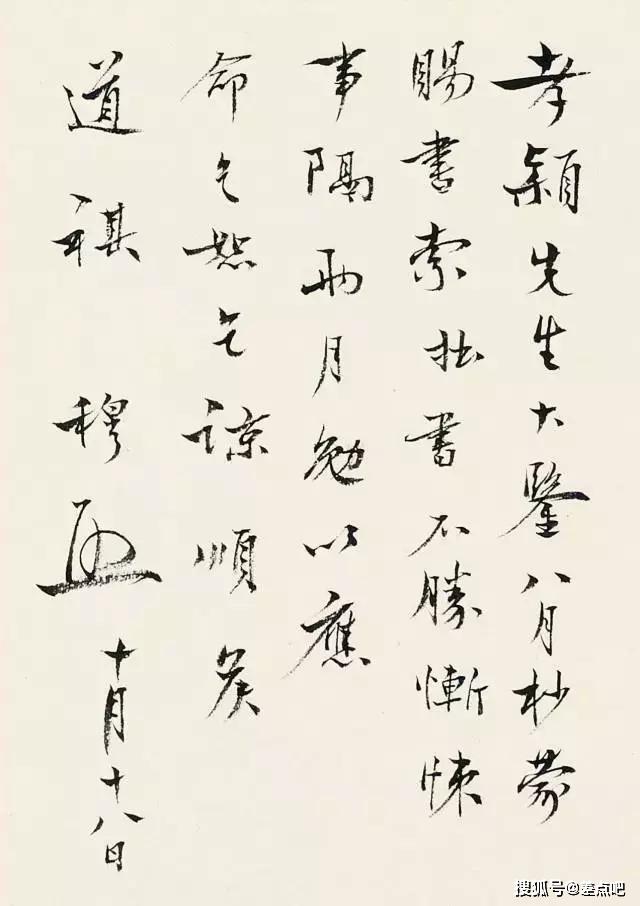 孝穎先生大鑒八月杪蒙
賜書索拙書不勝慚悚
事隔兩月勉以應
命乞恕乞諒順矦
道祺 穆 十月十八日
搜狐号@差点吧